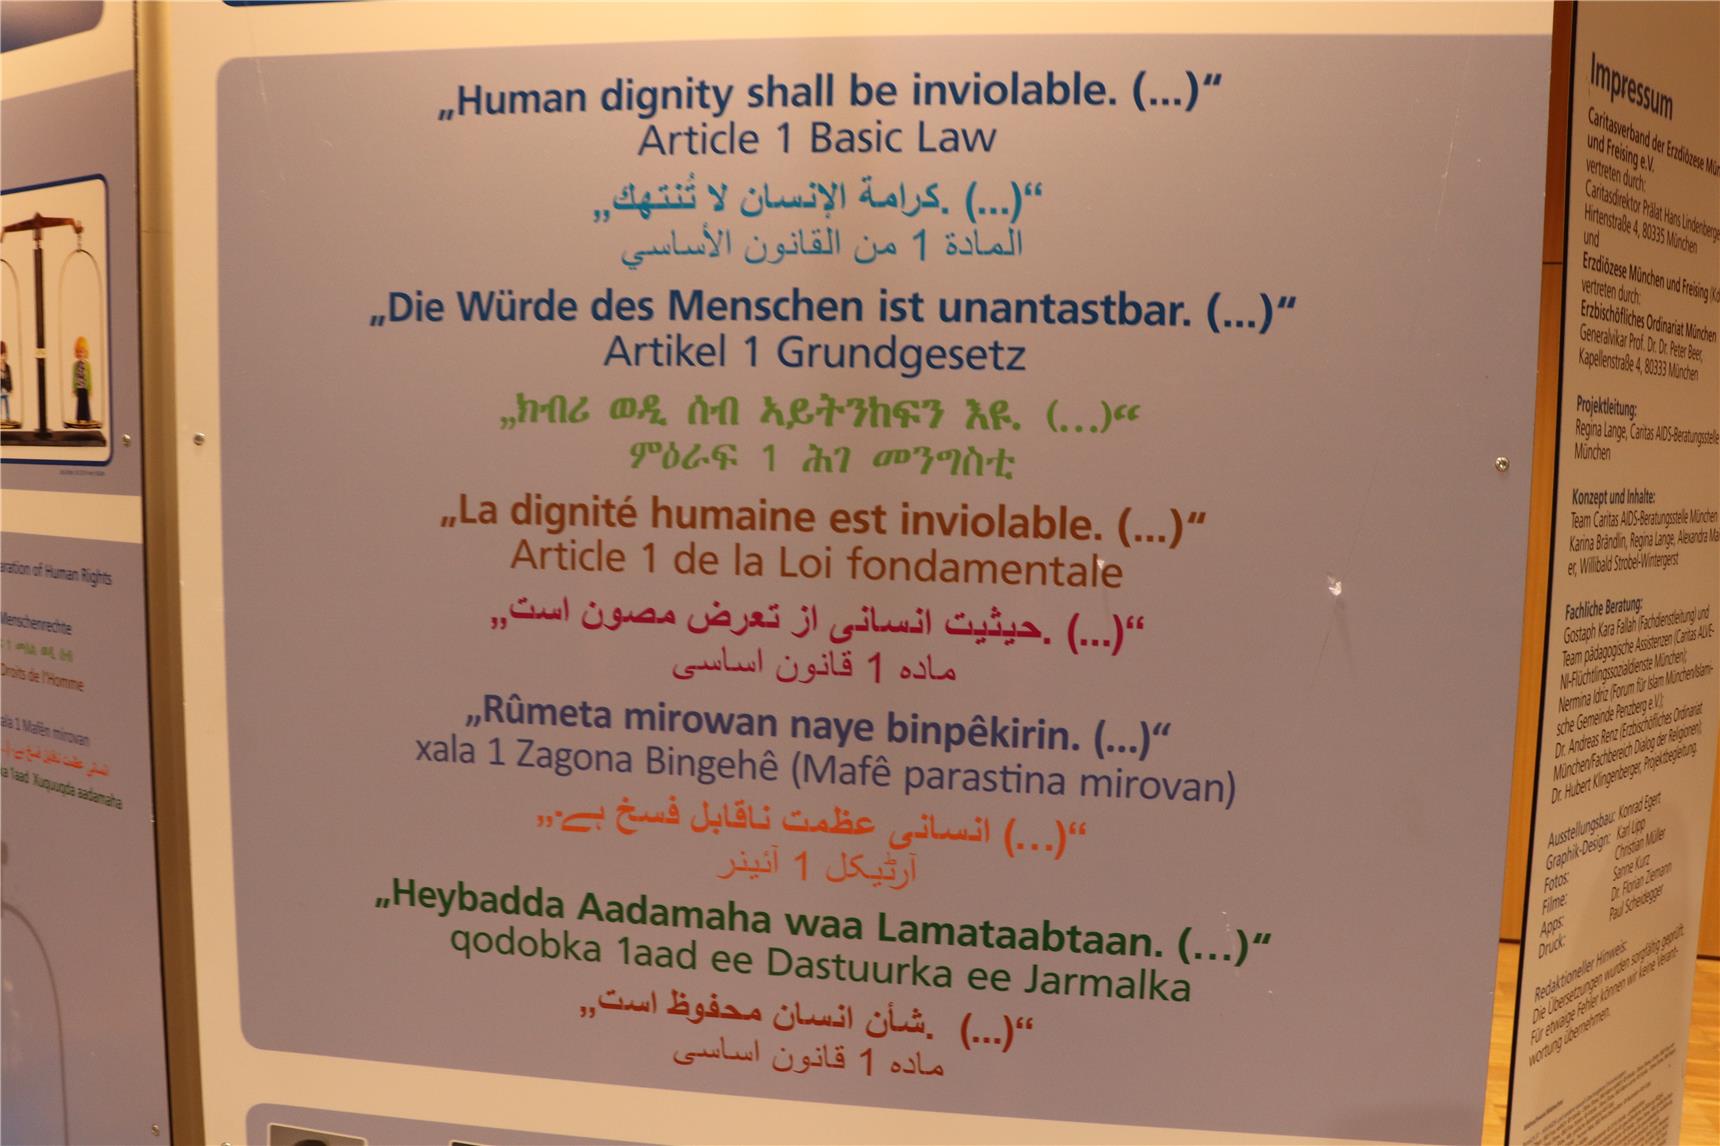 „Human dignity shall be inviolable. (...)“
Article 1 Basic Law
„كرامة الإنسان لا تُنتهك. (...)“
المادة 1 من القانون الأساسي
„Die Würde des Menschen ist unantastbar. (...)“
Artikel 1 Grundgesetz
„ክብሪ ወዲ ሰብ ኣይትንከፍን እዩ. (...)“
ምዕራፍ 1 ሕገ መንግስቲ
„La dignité humaine est inviolable. (...)“
Article 1 de la Loi fondamentale
„حیثیت انسانی از تعرض مصون است. (...)“
ماده 1 قانون اساسی
„Rûmeta mirowan naye binpêkirin. (...)“
xala 1 Zagona Bingehê (Mafê parastina mirovan)
„انسانی عظمت ناقابل فسخ ہے. (...)“
آرٹیکل 1 آئینر
„Heybadda Aadamaha waa Lamataabtaan. (...)“
qodobka 1aad ee Dastuurka ee Jarmalka
„شأن انسان محفوظ است. (...)“
ماده 1 قانون اساسی
aration of Human Rights
Menschenrechte
Droits de l'Homme
ala 1 Mafên mirovan
ka 1aad Xuquuqda aadamaha
Impressum
Caritasverband der Erzdiözese Mün
und Freising e.V.
vertreten durch:
Caritasdirektor Prälat Hans Lindenberge
Hirtenstraße 4, 80335 München
und
Erzdiözese München und Freising (Kd
vertreten durch:
Erzbischöfliches Ordinariat München
Generalvikar Prof. Dr. Dr. Peter Beer,
Kapellenstraße 4, 80333 München
Projektleitung:
Regina Lange, Caritas AIDS-Beratungsstelle
München
Konzept und Inhalte:
Team Caritas AIDS-Beratungsstelle München
Karina Brändlin, Regina Lange, Alexandra Mai
er, Willibald Strobel-Wintergerst
Fachliche Beratung:
Gostaph Kara Fallah (Fachdienstleitung) und
Team pädagogische Assistenzen (Caritas ALVE-
NI-Flüchtlingssozialdienste München);
Nermina Idriz (Forum für Islam München/Islami-
sche Gemeinde Penzberg e.V.);
Dr. Andreas Renz (Erzbischöfliches Ordinariat
München/Fachbereich Dialog der Religionen);
Dr. Hubert Klingenberger, Projektbegleitung.
Ausstellungsbau: Konrad Egert
Graphik-Design: Karl Lipp
Fotos: Christian Müller
Sanne Kurz
Filme: Dr. Florian Ziemann
Apps: Paul Scheidegger
Druck:
Redaktioneller Hinweis:
Die Übersetzungen wurden sorgfältig geprüft.
Für etwaige Fehler können wir keine Verant-
wortung übernehmen.